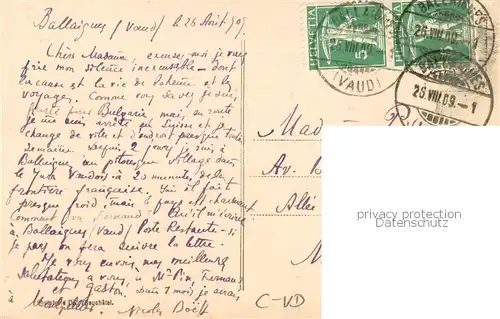 Ballaigues (Vaud) le 26 Août 09.
Chère Madame, excusez-moi je vous
prie mon silence inexcusable - dont
la cause est la vie de bohème et les
voyages. Comme vous savez je suis
Bulgarie, mais en route
je me suis arrêté en Suisse et je
change de ville et d'endroit presque toute
semaine. Depuis 2 jours je suis à
Ballaigue, un pittoresque village dans
le Jura Vaudois à 20 minutes, de la
frontière française. Ici il fait
presque froid, mais le pays est charmant
Comment va Fernand?
à Ballaigues (Vaud) Poste Restante - si
je pars on fera suivre la lettre.
Je vous envoie mes meilleures
salutations à vous, à Mr Pin, Fernand
et Gaston. Dans 1 mois je serai
à Montpellier. Nicolas
HELVETIA
5
(VAUD)
25.VIII.09
26.VIII.09-1
Mad
Av.
Allé
C-VD
privacy protection
Datenschutz